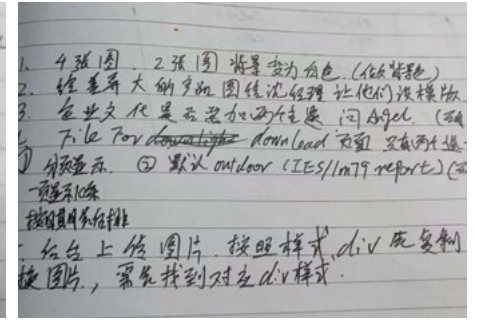 1. 4张图. 2张图 背景变为白色. (做背景色)
2. 给差异大的产品图给沈经理 让他们设模版
3. 企业文化是否要加两个主题 问Angel.
File For download 页面 只有两个选
① 分页显示. ② 默认 outdoor (IES/lm79 report)
一页显示10条
按时间先后排
后台上传图片. 按照样式, div 先复制
换图片, 需先找到对应div样式.